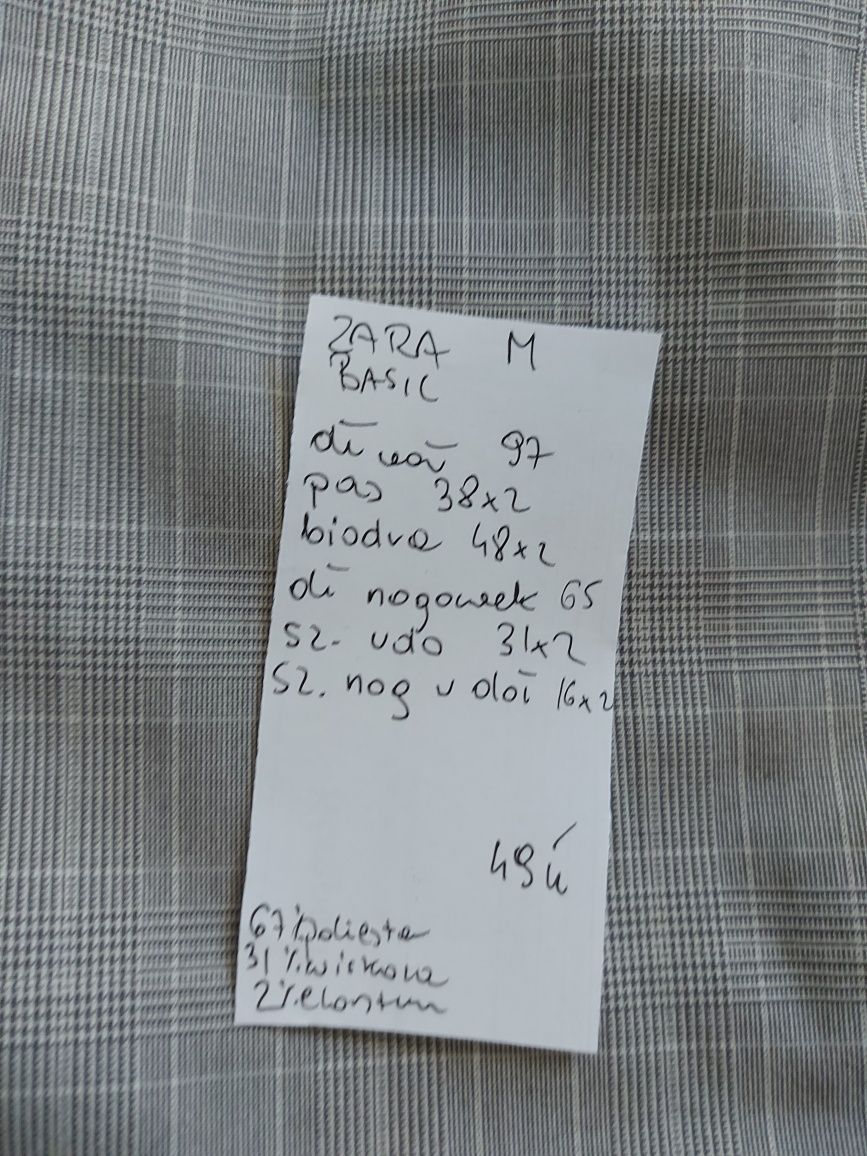 ZARA M
BASIC
dł cał 97
pas 38x2
biodra 48x2
dł nogawek 65
sz. udo 31x2
sz. nog u doł 16x2
49 zł
67% poliester
31% wiskoza
2% elastan